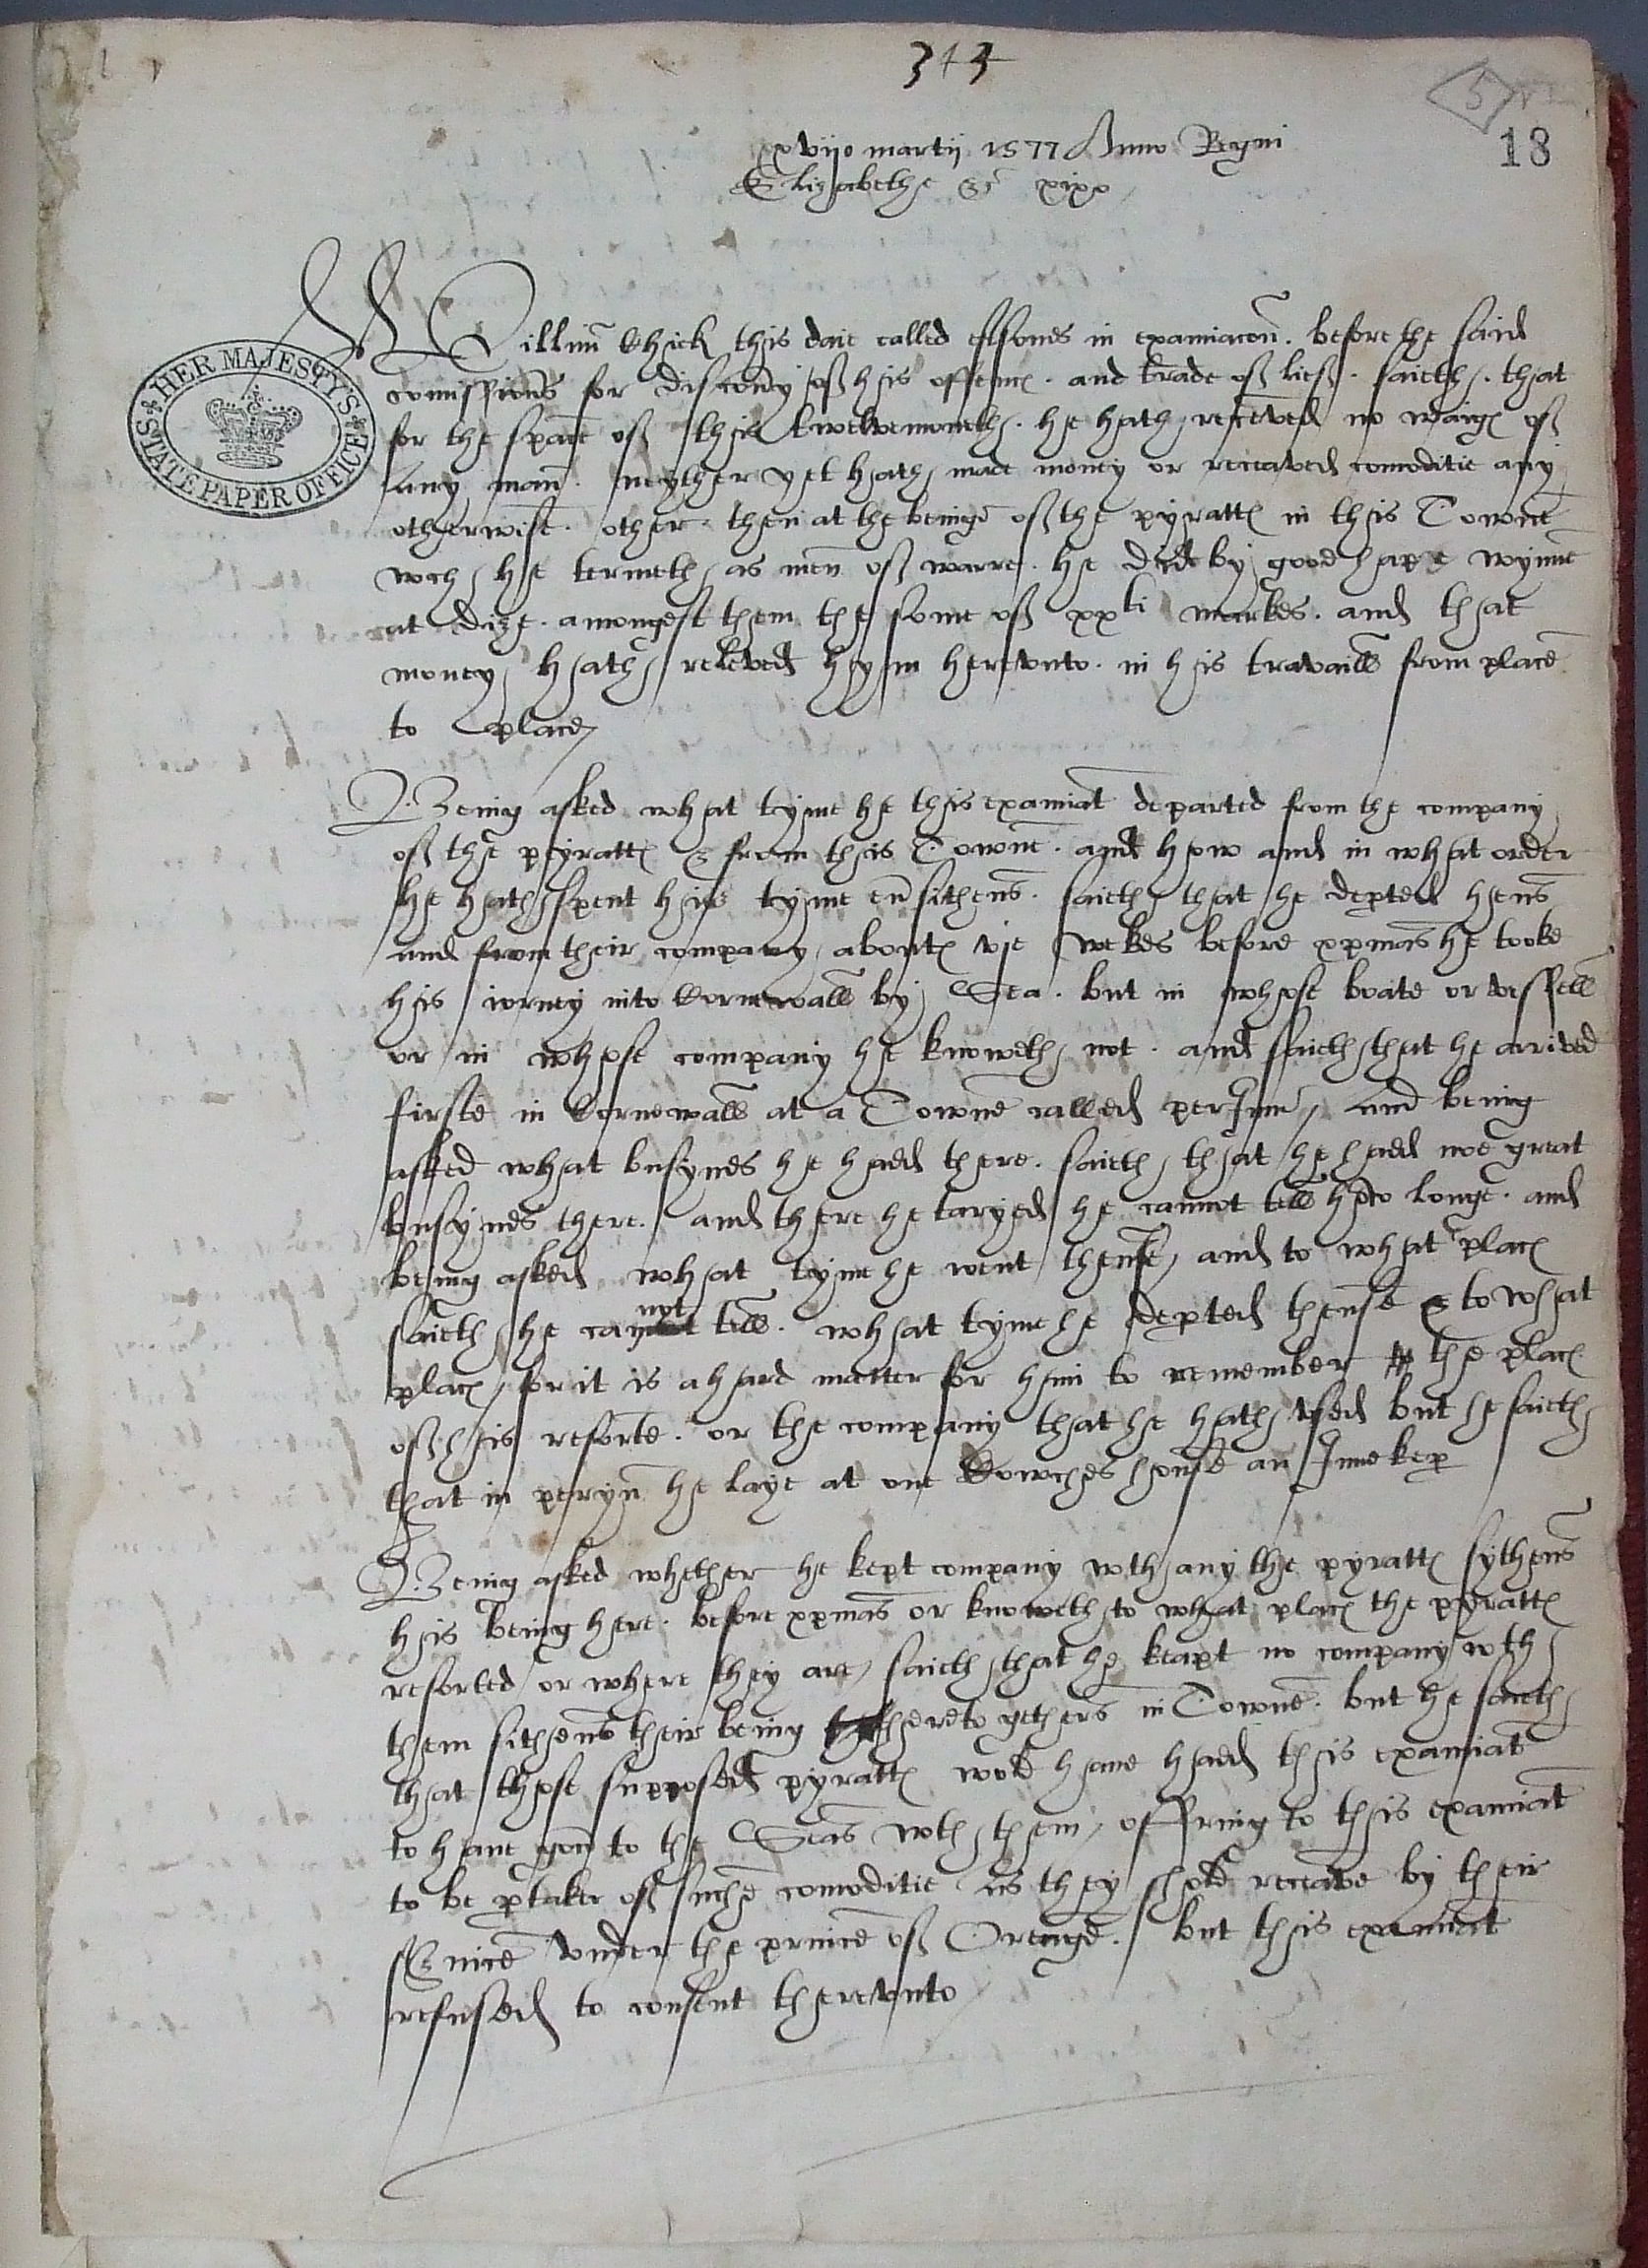 343
5
18
xviio martij 1577 Anno Regni
Elizabethe &c xixo
HER MAJESTY'S
STATE PAPER OFFICE
Willim Chick this daie called eftsones in examiacon. before the said
comissions for discovy of his offence. and trade of lief. saieth. that
for the space of this twelvemoneth. he hath receved no waiges of
any man. neyther yet hath made money or receaved comoditie any
otherwise. other then at the beinge of the pyrattes in this Towne
wch he termeth as men of warre. he did by good hape wynne
at dize. amongest them the some of xxti markes. and that
money hath releved hym herevnto. in his travaill from place
to place
Being asked what tyme he this examiat departed from the company
of the pyrattes & from this Towne. and how and in what order
he hath spent his tyme eu sithens. saieth that he depted hens
and from their company aboute vje wekes before xpmas he tooke
his iorney into Cornewall by Sea. but in whose boate or vessell
or in whose company he knoweth not. and saieth that he arrived
firste in Cornewall at a Towne called perInn, and being
asked what busynes he hadd there. saieth that he hadd noe great
busynes there. and there he taryed he cannot tell how longe. and
being asked what tyme he went thense, and to what places
saieth he cannot tell. what tyme he depted thense & to what
places, for it is a hard matter for him to remember the places
of his resorte. or the company that he hath vsed but he saieth
that in peryn he laye at one Cowches house an Innekep
Being asked whether he kept company wth any the pyrattes sythens
his being here. before xpmas or knoweth to what places the pyrattes
resorted or where they are, saieth that he keapt no company wth
them sithens their being there to gethers in Towne. but he saieth
that those supposed pyrattes wold have hadd this examiat
to have gon to the Seas wth them, offring to this examiat
to be ptaker of suche comoditie as they shold receave by their
service vnder the prince of Orenge. but this examiat
refused to consent therevnto